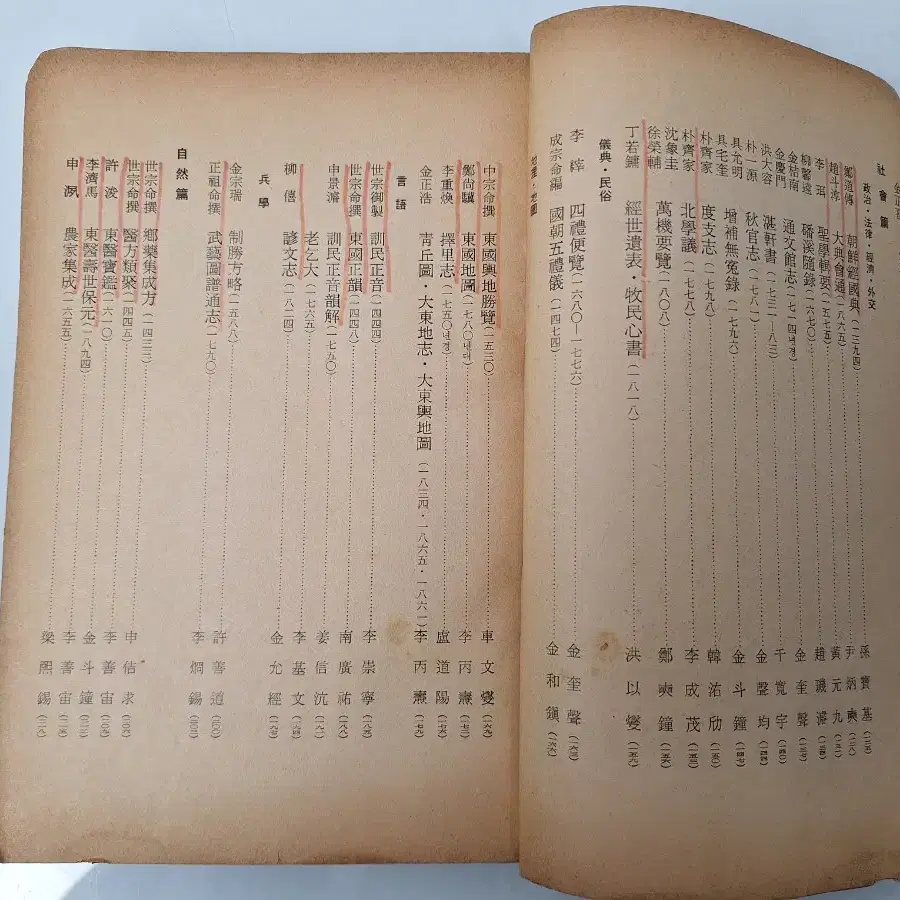 社會篇
政治・法律・經濟・外交
鄭道傳 朝鮮經國典(一三九四) 孫寶基
趙斗淳 大典會通(一八六五) 尹炳奭
李珥 聖學輯要(一五七五) 黃元九
柳馨遠 磻溪隨錄(一六七〇) 趙璣濬
金指南 金慶門 通文館志(一七一四년경) 金奎聲
洪大容 湛軒書(一七三一—八三) 千寬宇(一四〇)
朴一源 秋官志(一七八一) 金聖均(一四四)
具允明 具宅奎 增補無寃錄(一七九六) 金斗鐘(一四七)
朴齊家 度支志(一七八八) 韓㳓劤(一五〇)
朴齊家 北學議(一七七八) 李成茂(一五三)
沈象圭 徐榮輔 萬機要覽(一八〇八) 鄭奭鐘(一五六)
丁若鏞 經世遺表・牧民心書(一八一八) 洪以燮(一五九)
儀典・民俗
李縡 四禮便覽(一六八〇—一七七六) 金奎聲(一六三)
成宗命編 國朝五禮儀(一四七四) 金和鎭(一六六)
地理・地圖
中宗命撰 東國輿地勝覽(一五三〇) 車文燮(一六九)
鄭尙驥 東國地圖(一七八〇년대) 李丙燾(一七三)
李重煥 擇里志(一七五〇년경) 盧道陽(一七六)
金正浩 靑丘圖・大東地志・大東輿地圖(一八三四・一八六五・一八六一) 李丙燾(一七九)
言語
世宗御製 訓民正音(一四四六) 李崇寧(一八五)
世宗命撰 東國正韻(一四四八) 南廣祐(一八八)
申景濬 訓民正音韻解(一七五〇) 姜信沆(一九一)
老乞大(一七六五) 李基文(一九四)
柳僖 諺文志(一八二四) 金允經(一九七)
兵學
金宗瑞 制勝方略(一五八八) 許善道(二〇〇)
正祖命撰 武藝圖譜通志(一七九〇) 李烱錫(二〇三)
自然篇
世宗命撰 鄕藥集成方(一四三三)
世宗命撰 醫方類聚(一四四五) 申佶求(二〇六)
許浚 東醫寶鑑(一六一〇) 李善宙
李濟馬 東醫壽世保元(一八九四) 金斗鐘
申洬 農家集成(一六五五) 李善宙
梁熙錫